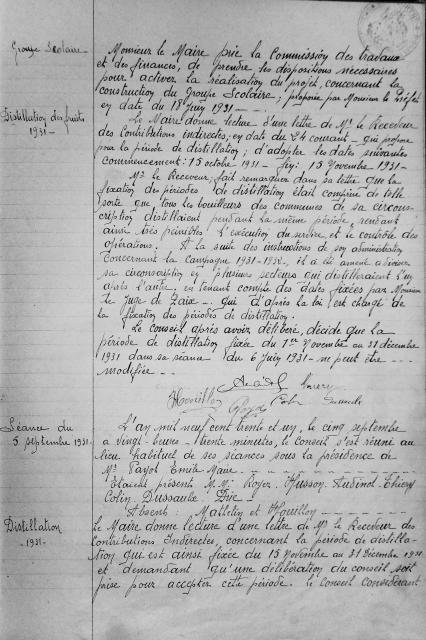 Groupe Scolaire
Monsieur le Maire prie la Commission des travaux
et des finances, de prendre les dispositions nécessaires
pour activer la réalisation du projet, concernant la
construction du Groupe Scolaire; proposée par Monsieur le Préfet
en date du 18 Juin 1931
Distillation des fruits
1931
Le Maire donne lecture d'une lettre de Mr le Receveur
des Contributions indirectes, en date du 24 courant qui propose
pour la période de distillation; d'adopter les dates suivantes
Commencement: 15 octobre 1931 - fin: 15 Novembre 1931
Mr le Receveur, fait remarquer dans sa lettre que la
fixation de périodes de distillation était comprise de telle
sorte que tous les bouilleurs des communes de sa circons-
cription distillaient pendant la même période, rendant
ainsi très pénibles l'exécution du service et le contrôle des
opérations. A la suite des instructions de son administration
concernant la Campagne 1931-1932, il a été amené à diviser
sa circonscription en plusieurs secteurs qui distilleraient l'un
après l'autre, en tenant compte des dates fixées par Monsieur
le Juge de Paix qui d'après la loi est chargé de
la fixation des périodes de distillation.
Le Conseil après avoir délibéré, décide que la
période de distillation fixée du 1er Novembre au 31 décembre
1931 dans sa séance du 6 Juin 1931 ne peut être
modifiée
Séance du
5 septembre 1931
L'an mil neuf cent trente et un, le cinq septembre
à vingt heures trente minutes, le conseil s'est réuni au
lieu habituel de ses séances sous la présidence de
Mr Payot Emile Maire
Etaient présents M.M. Royer, Husson, Audinot, Thiery
Colin, Dussaulx
Absents: Mathelin et Houillon
Distillation
1931
Le Maire donne lecture d'une lettre de Mr le Receveur des
Contributions Indirectes, concernant la période de distilla-
tion qui est ainsi fixée du 15 Novembre au 31 Décembre 1931
et demandant qu'une délibération du conseil soit
prise pour accepter cette période. Le Conseil considérant